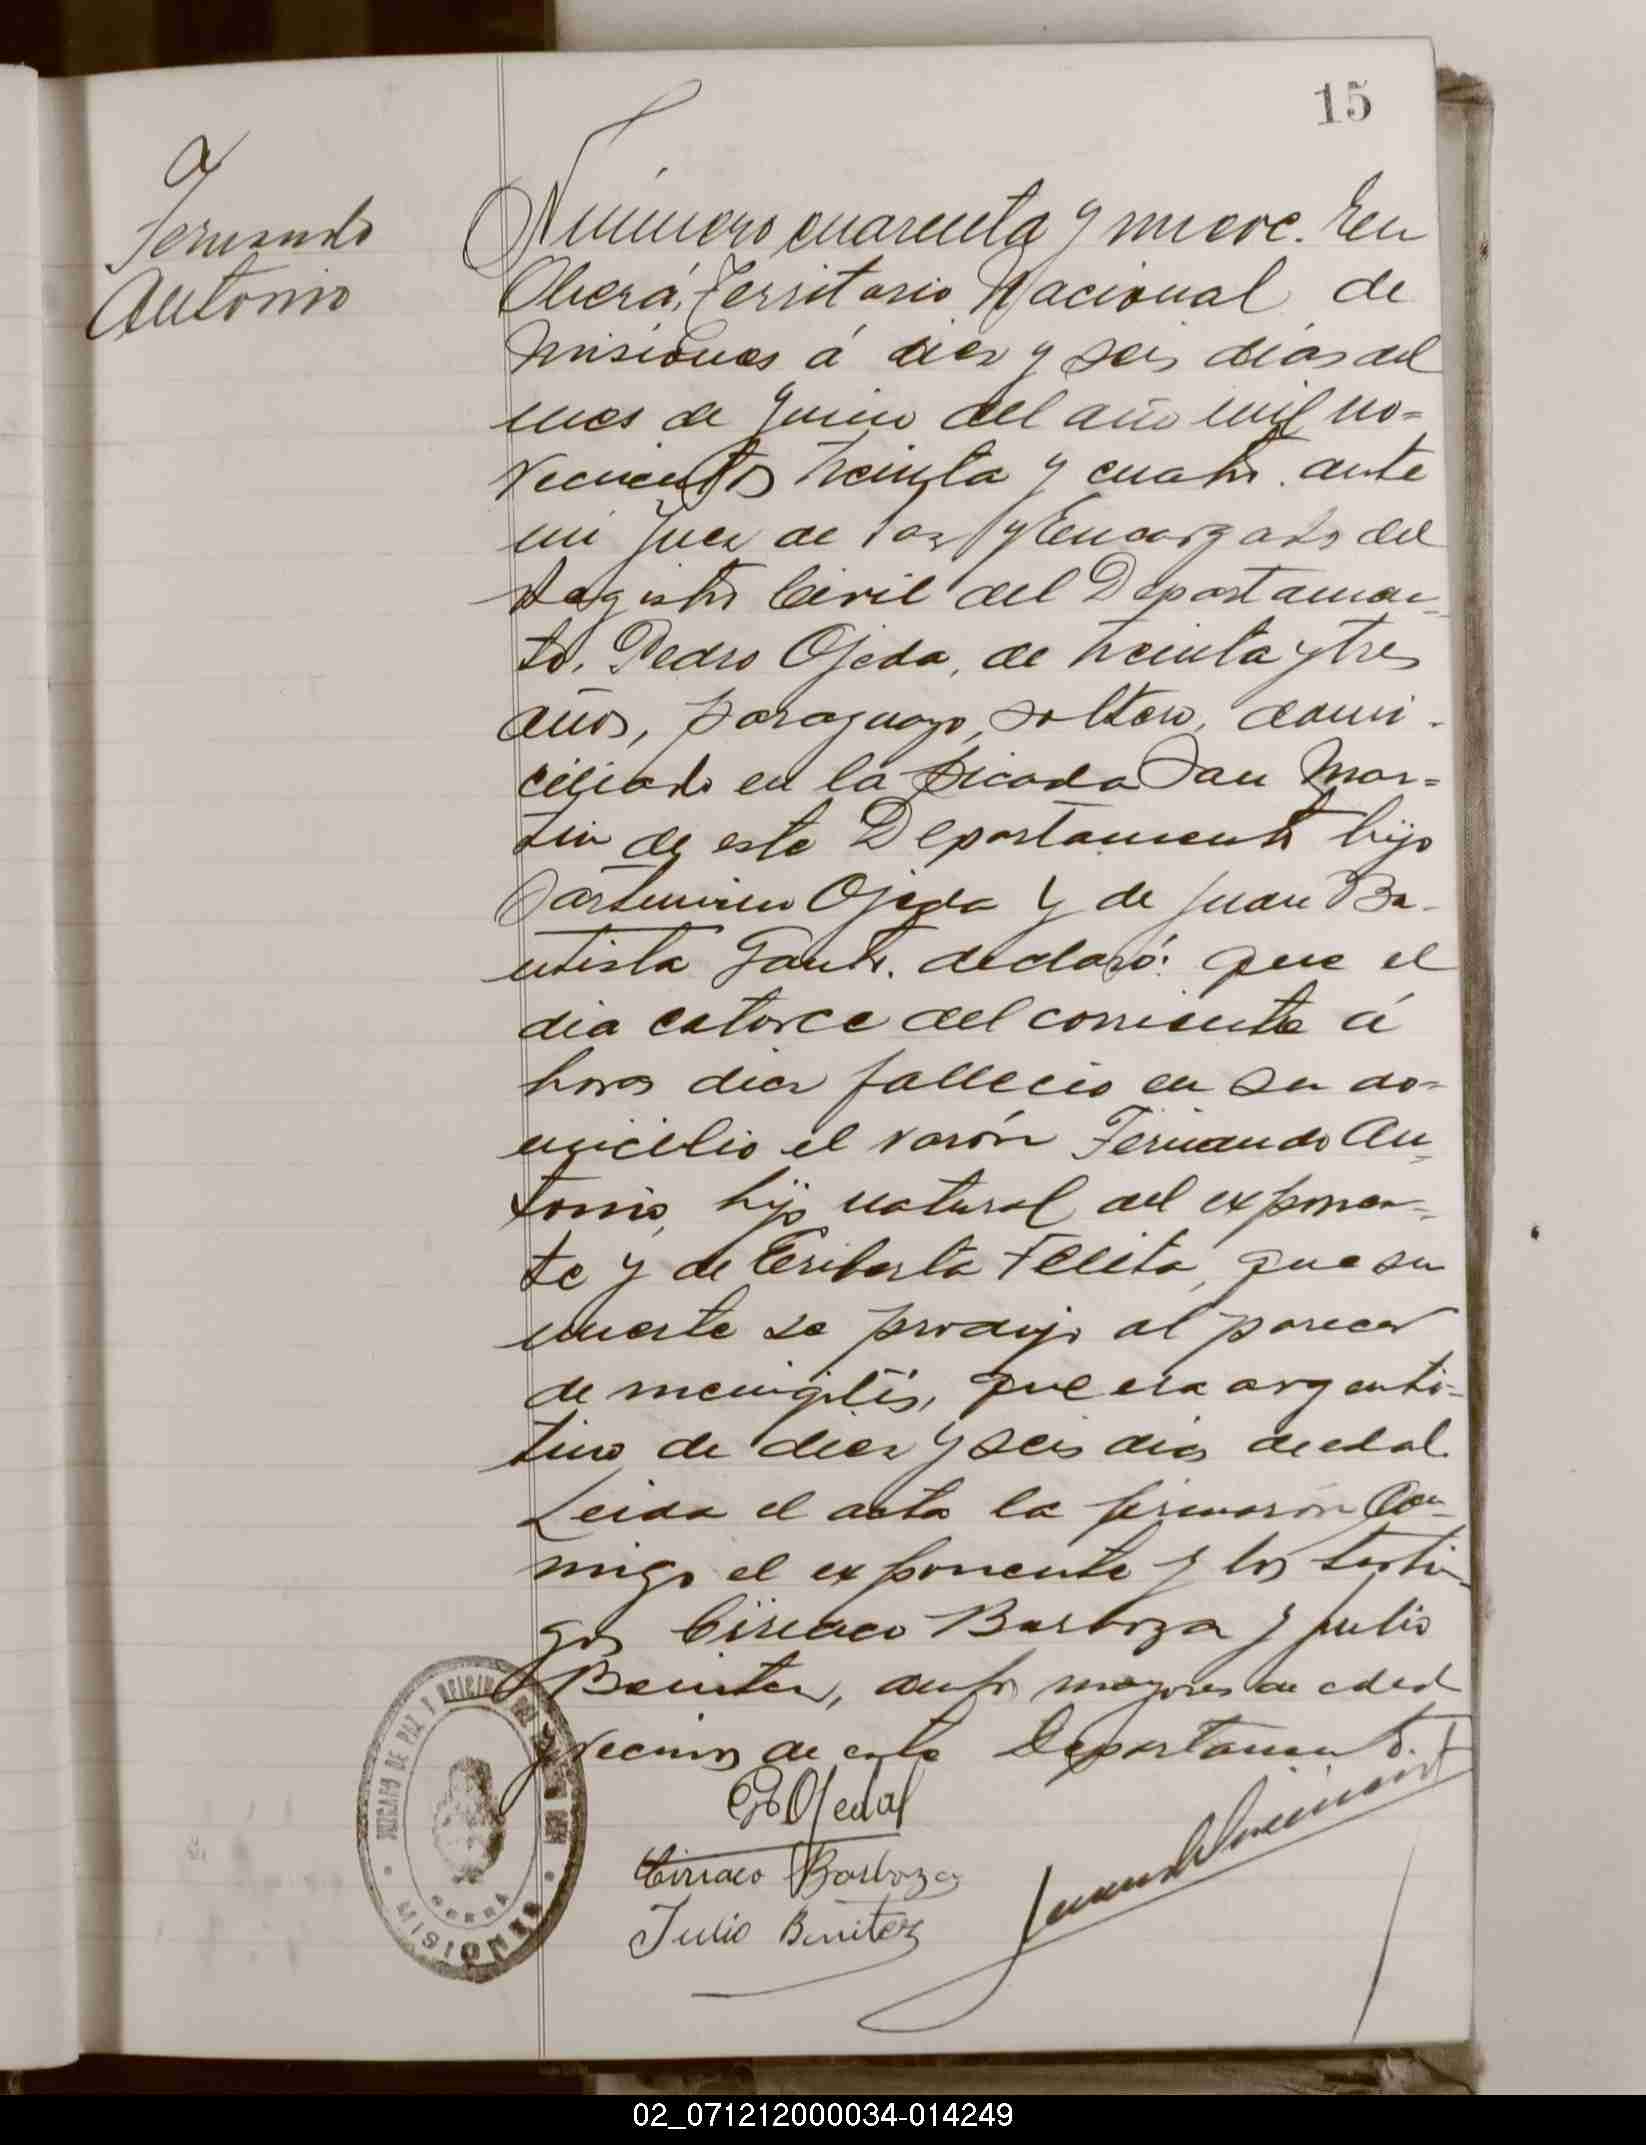 15
Fernando
Antonio
Número cuarenta y nueve. En
Oberá, Territorio Nacional de
Misiones á diez y seis días del
mes de Junio del año mil no=
vecientos treinta y cuatro. ante
mi Juez de Paz y Encargado del
Registro Civil del Departamen=
to, Pedro Ojeda, de treinta y tres
años, paraguayo, soltero, domi-
ciliado en la picada San Mar=
tin de este Departamento hijo
Ojeda y de Juan Ba-
utista declaró: que el
dia catorce del corriente á
horas diez fallecio en su do=
micilio el varón Fernando An=
tonio, hijo natural del exponen=
te y de Eriberta Felita, que su
muerte se produjo al parecer
de meningitis, que era argenti=
tino de diez y seis dias de edad.
Leida el acta la firmarón con=
migo el exponente y los testi=
gos Ciriaco Barboza y Julio
Benitez, ambos mayores de edad
y vecinos de este Departamento.
Po Ojeda
Ciriaco Barboza
Julio Benitez
JUZGADO DE PAZ Y OFICINA DEL
OBERA
MISIONES
02_071212000034-014249